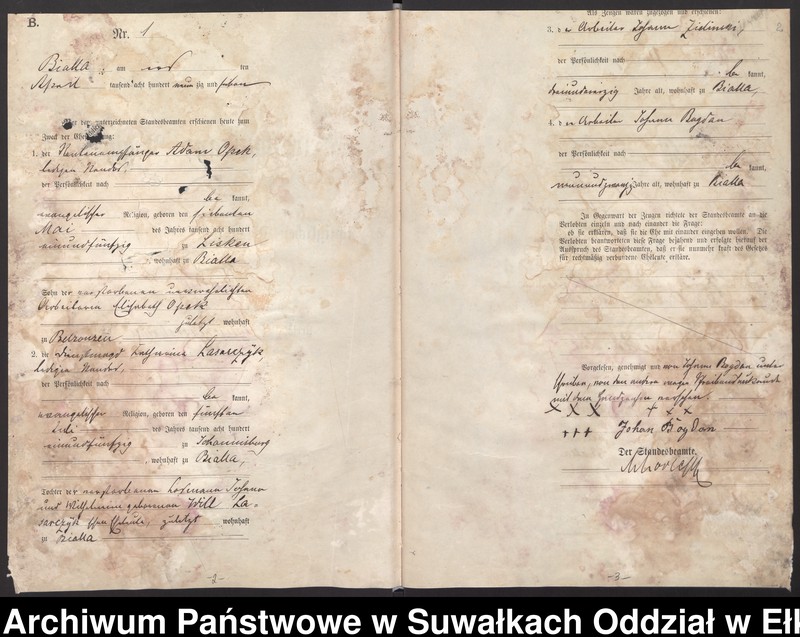 B.
Nr. 1
Bialla am ten
April tausend acht hundert neunzig und sieben
Vor der unterzeichneten Standesbeamten erschienen heute zum
Zweck der Eheschließung:
1. der Rentenempfänger Adam Opek,
ledigen Standes,
der Persönlichkeit nach
be kannt,
evangelischer Religion, geboren den siebenten
Mai des Jahres tausend acht hundert
einundfünfzig zu Lisken
, wohnhaft zu Bialla
Sohn der verstorbenen unverehelichten
Arbeiterin Elisabeth Opek
zuletzt wohnhaft
zu Belzonzen
2. die Dienstmagd Katharina Lasarczyk,
ledigen Standes,
der Persönlichkeit nach
be kannt,
evangelischer Religion, geboren den fünften
Juli des Jahres tausend acht hundert
einundfünfzig zu Johannisburg
, wohnhaft zu Bialla,
Tochter der verstorbenen Losmann Johann
und Wilhelmine geborenen Will La-
sarczyk'schen Eheleute, zuletzt wohnhaft
zu Bialla
-2-
Als Zeugen waren zugezogen und erschienen:
3. der Arbeiter Johann Zielinski,
2
der Persönlichkeit nach
be kannt,
dreiundvierzig Jahre alt, wohnhaft zu Bialla,
4. der Arbeiter Johann Bogdan
der Persönlichkeit nach
be kannt,
neunundzwanzig Jahre alt, wohnhaft zu Bialla
In Gegenwart der Zeugen richtete der Standesbeamte an die
Verlobten einzeln und nach einander die Frage:
ob sie erklären, daß sie die Ehe mit einander eingehen wollen. Die
Verlobten beantworteten diese Frage bejahend und erfolgte hierauf der
Ausspruch des Standesbeamten, daß er sie nunmehr kraft des Gesetzes
für rechtmäßig verbundene Eheleute erkläre.
Vorgelesen, genehmigt und von Johann Bogdan unter
schrieben, von den andern wegen Schreibensunkunde
mit dem Handzeichen versehen.
X X X + + +
+++ Johan Bogdan
Der Standesbeamte.
-3-
Archiwum Państwowe w Suwałkach Oddział w Ełk